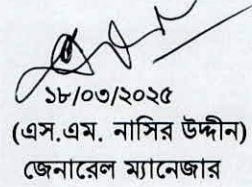 ১৮/০৩/২০২৫
(এস.এম. নাসির উদ্দীন)
জেনারেল ম্যানেজার